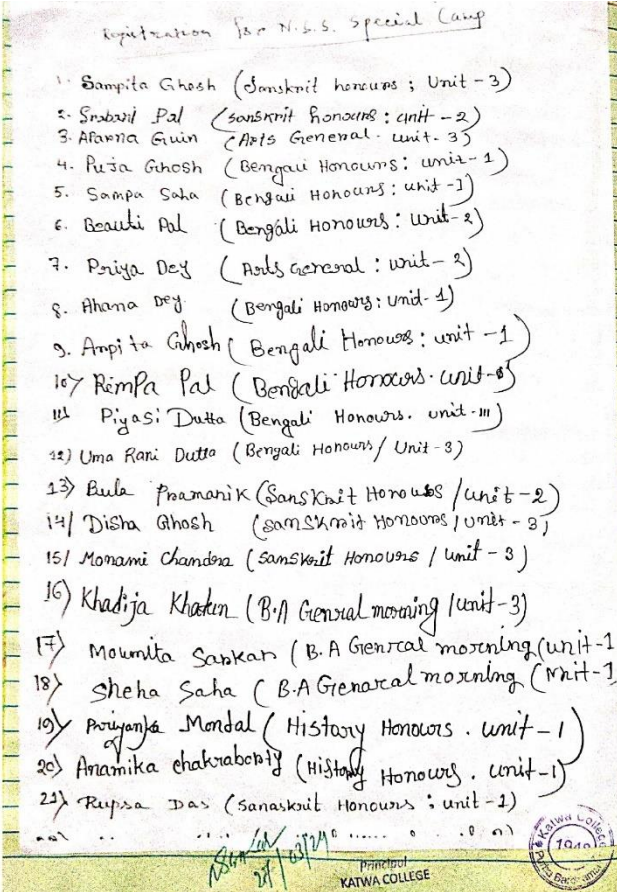 Registration for N.S.S. Special Camp
1. Sampita Ghosh (Sanskrit honours ; Unit - 3)
2. Srabani Pal (sanskrit honours : unit - 2)
3. Aparna Guin (Arts General. unit. 3)
4. Puja Ghosh (Bengali Honours: unit - 1)
5. Sampa Saha (Bengali Honours: unit -1)
6. Beauti Pal (Bengali Honours: Unit - 2)
7. Priya Dey (Arts General : unit - 2)
8. Ahana Dey (Bengali Honours: Unit - 1)
9. Arpita Ghosh (Bengali Honours: unit - 1)
10) Rimpa Pal (Bengali Honours. unit-
11) Piyasi Dutta (Bengali Honours. unit-III)
12) Uma Rani Dutta (Bengali Honours / Unit - 3)
13) Bula Pramanik (Sanskrit Honours / unit - 2)
14/ Disha Ghosh (sanskrit Honours / unit - 3)
15/ Monami Chandra (sanskrit Honours / unit - 3)
16) Khadija Khatun (B.A Genral morning / unit - 3)
17) Moumita Sarkar (B.A Genrcal morning (unit - 1
18) Sheha Saha (B.A Genarcal morning (unit - 1
19) Priyanka Mondal (History Honours. unit - 1)
20) Anamika chakraborty (History Honours. unit - 1)
21) Rupsa Das (Sanaskrit Honours ; unit - 1)
03/24
Principal
KATWA COLLEGE
Katwa College